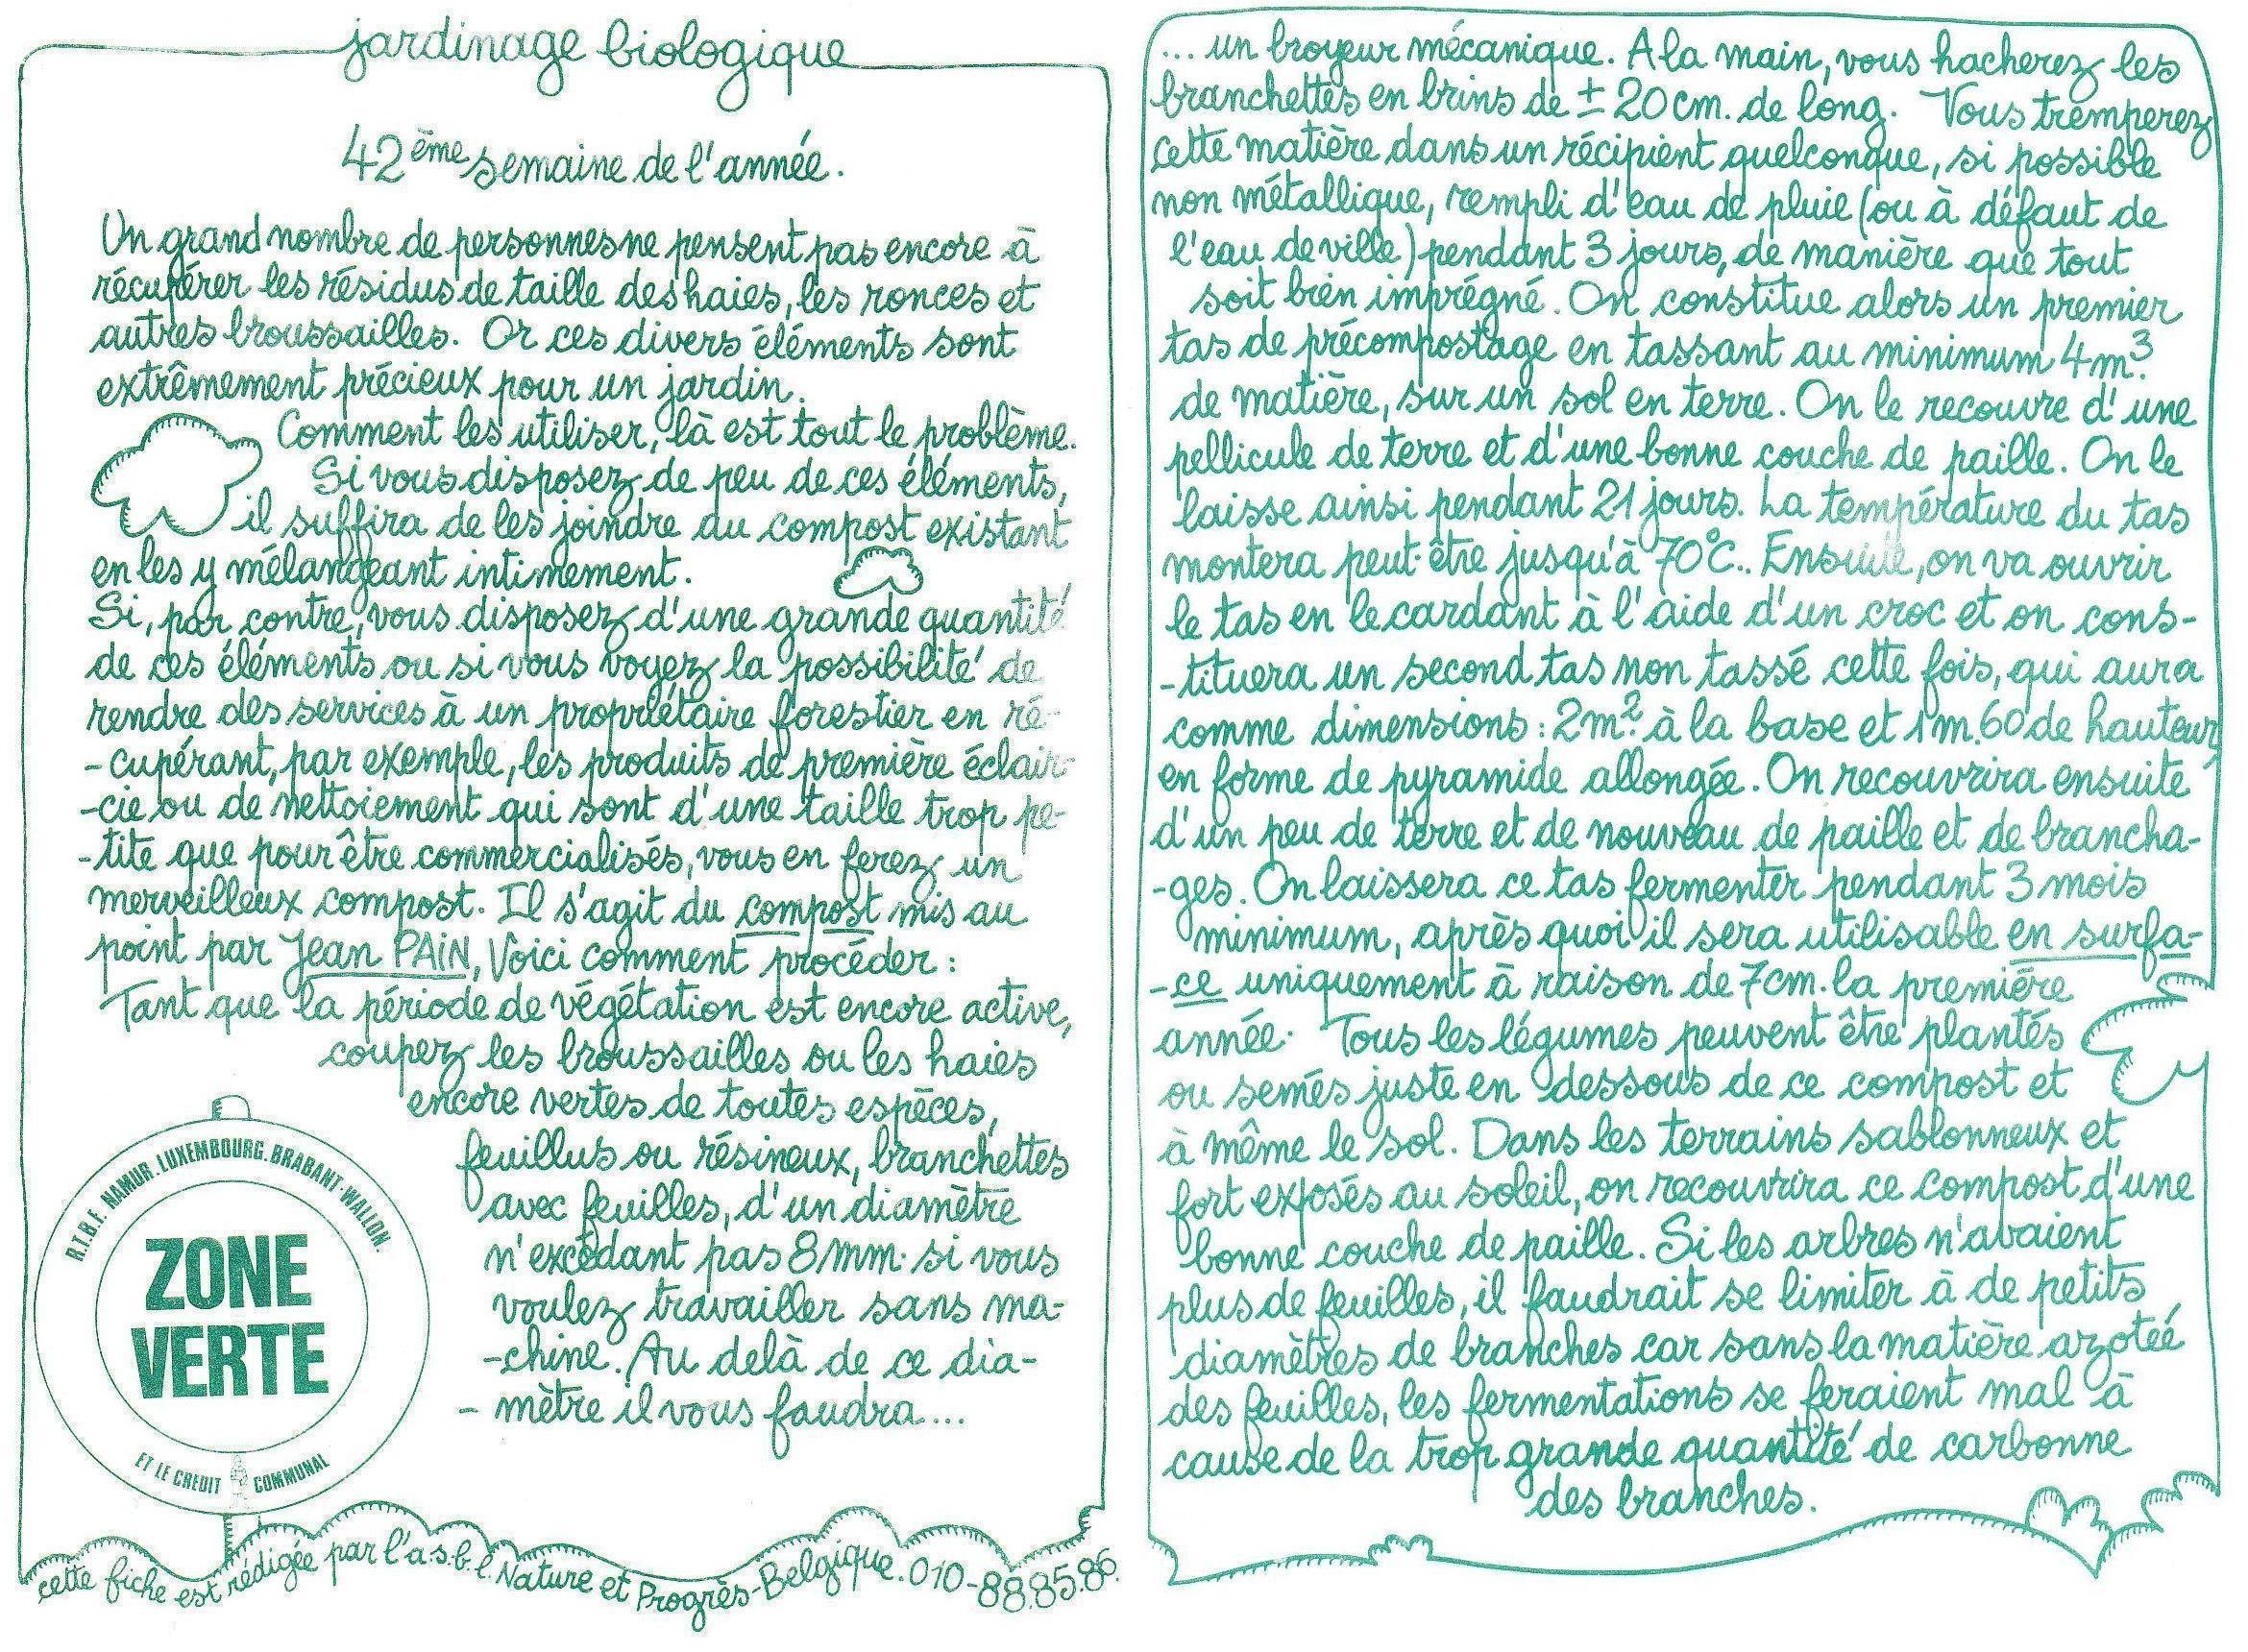 jardinage biologique
42ème semaine de l'année.
Un grand nombre de personnes ne pensent pas encore à
récupérer les résidus de taille des haies, les ronces et
autres broussailles. Or ces divers éléments sont
extrêmement précieux pour un jardin.
Comment les utiliser, là est tout le problème.
Si vous disposez de peu de ces éléments,
il suffira de les joindre au compost existant
en les y mélangeant intimement.
Si, par contre, vous disposez d'une grande quantité
de ces éléments ou si vous voyez la possibilité de
rendre des services à un propriétaire forestier en ré-
-cupérant, par exemple, les produits de première éclair-
-cie ou de nettoiement qui sont d'une taille trop pe-
-tite que pour être commercialisés, vous en ferez un
merveilleux compost. Il s'agit du compost mis au
point par Jean PAIN, Voici comment procéder :
Tant que la période de végétation est encore active,
coupez les broussailles ou les haies
encore vertes de toutes espèces,
feuillus ou résineux, branchettes
avec feuilles, d'un diamètre
n'excédant pas 8 mm. si vous
voulez travailler sans ma-
-chine. Au delà de ce dia-
- mètre il vous faudra...
R.T.B.F. NAMUR. LUXEMBOURG. BRABANT-WALLON.
ZONE
VERTE
ET LE CREDIT COMMUNAL
cette fiche est rédigée par l'a.s.b.l. Nature et Progrès-Belgique. 010-88.85.86.
... un broyeur mécanique. A la main, vous hacherez les
branchettes en brins de ± 20 cm. de long. Vous tremperez
cette matière dans un récipient quelconque, si possible
non métallique, rempli d'eau de pluie (ou à défaut de
l'eau de ville) pendant 3 jours, de manière que tout
soit bien imprégné. On constitue alors un premier
tas de précompostage en tassant au minimum 4 m³.
de matière, sur un sol en terre. On le recouvre d'une
pellicule de terre et d'une bonne couche de paille. On le
laisse ainsi pendant 21 jours. La température du tas
montera peut-être jusqu'à 70°C.. Ensuite, on va ouvrir
le tas en le cardant à l'aide d'un croc et on cons-
-tituera un second tas non tassé cette fois, qui aura
comme dimensions : 2m². à la base et 1m.60 de hauteur
en forme de pyramide allongée. On recouvrira ensuite
d'un peu de terre et de nouveau de paille et de brancha-
-ges. On laissera ce tas fermenter pendant 3 mois
minimum, après quoi il sera utilisable en surfa-
-ce uniquement à raison de 7cm. la première
année. Tous les légumes peuvent être plantés
ou semés juste en dessous de ce compost et
à même le sol. Dans les terrains sablonneux et
fort exposés au soleil, on recouvrira ce compost d'une
bonne couche de paille. Si les arbres n'avaient
plus de feuilles, il faudrait se limiter à de petits
diamètres de branches car sans la matière azotée
des feuilles, les fermentations se feraient mal à
cause de la trop grande quantité de carbonne
des branches.